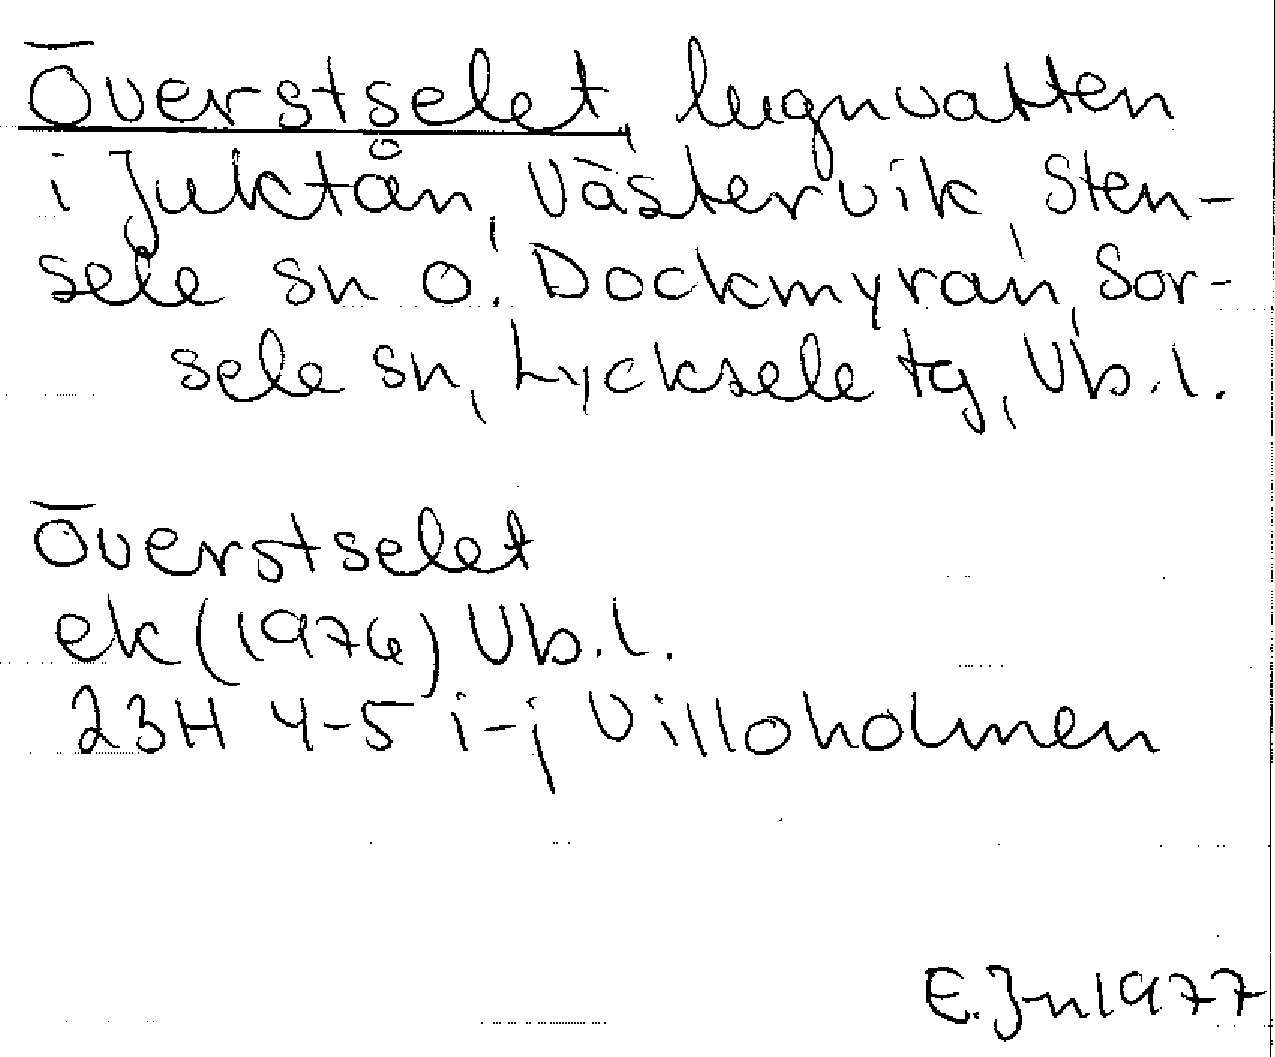 Överstselet, lugnvatten
i Juktån, Västervik, Sten-
sele sn o. Dockmyran, Sor-
sele sn, Lycksele tg, Vb.l.
Överstselet
ek (1976) Vb.l.
23H 4-5 i-j Villoholmen
E.Jn 1977